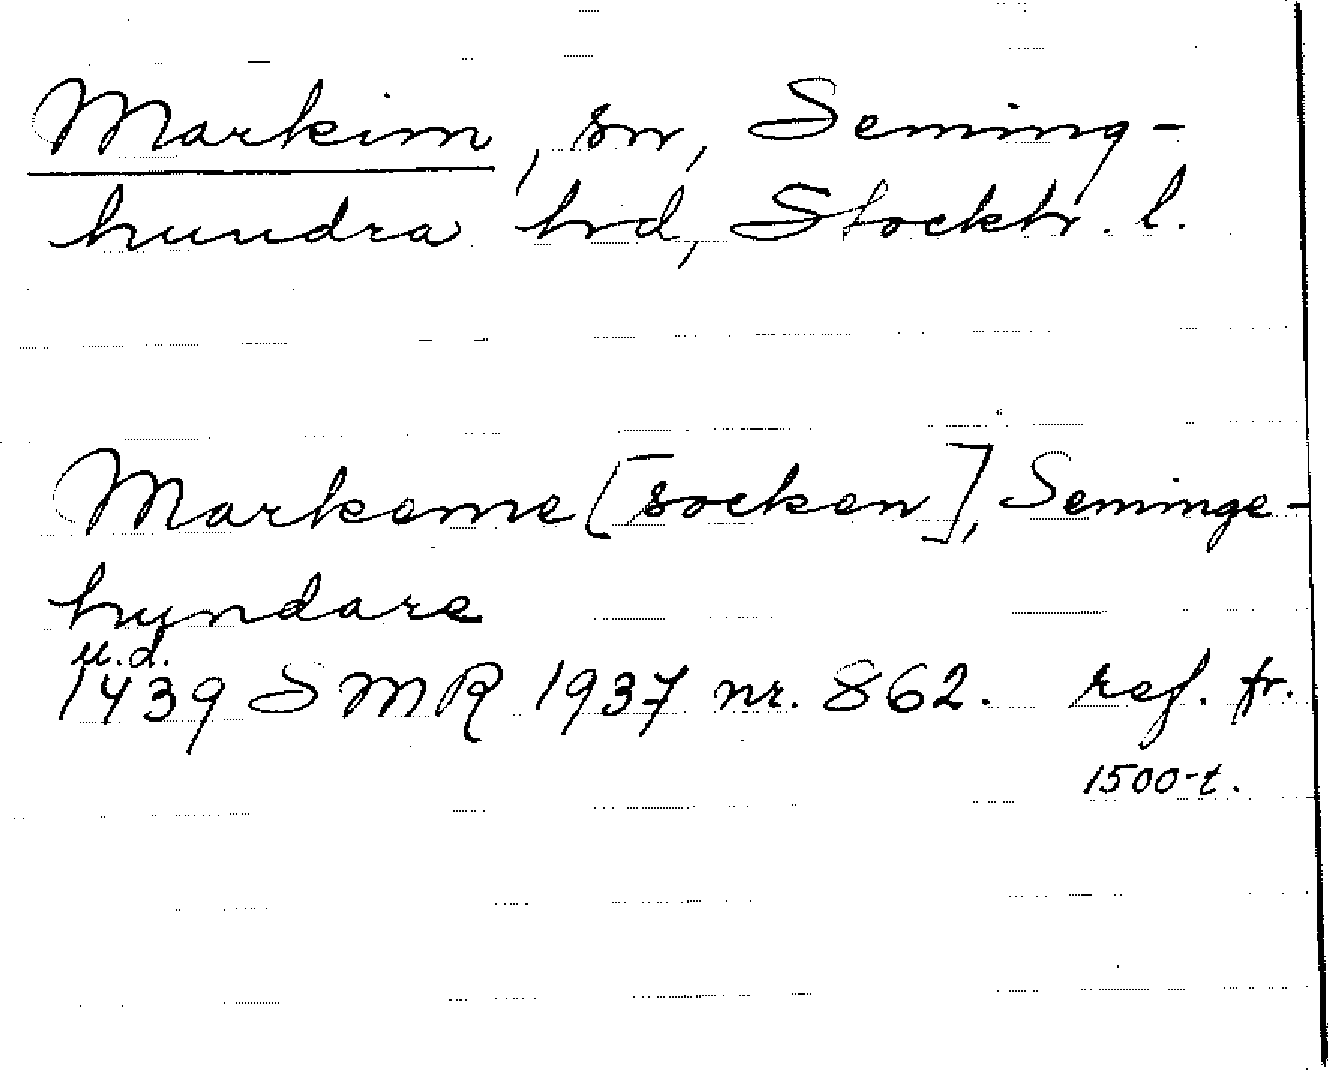 Markim, sn, Seming-
hundra hd, Stockh. l.
Markeme [socken], Seminge-
hundare
u.d.
1439 SMR 1937 nr. 862. ref. fr.
1500-t.